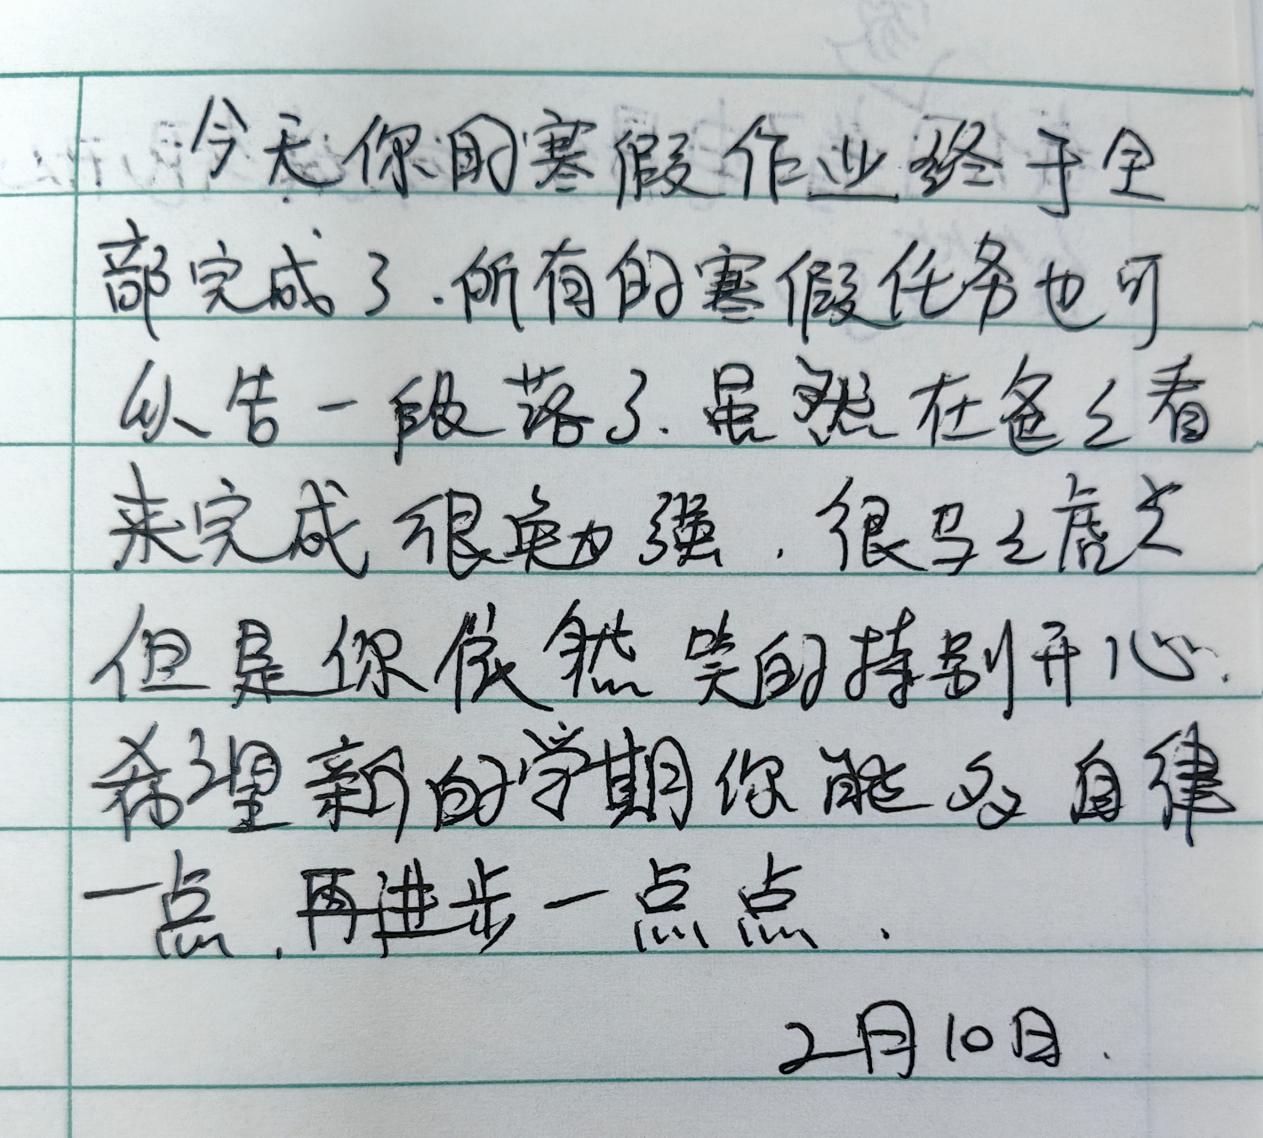 今天你的寒假作业终于全
部完成了.所有的寒假任务也可
以告一段落了.虽然在爸爸看
来完成很勉强.很马马虎虎
但是你依然笑的特别开心.
希望新的学期你能多自律
一点.再进步一点点.
2月10日.